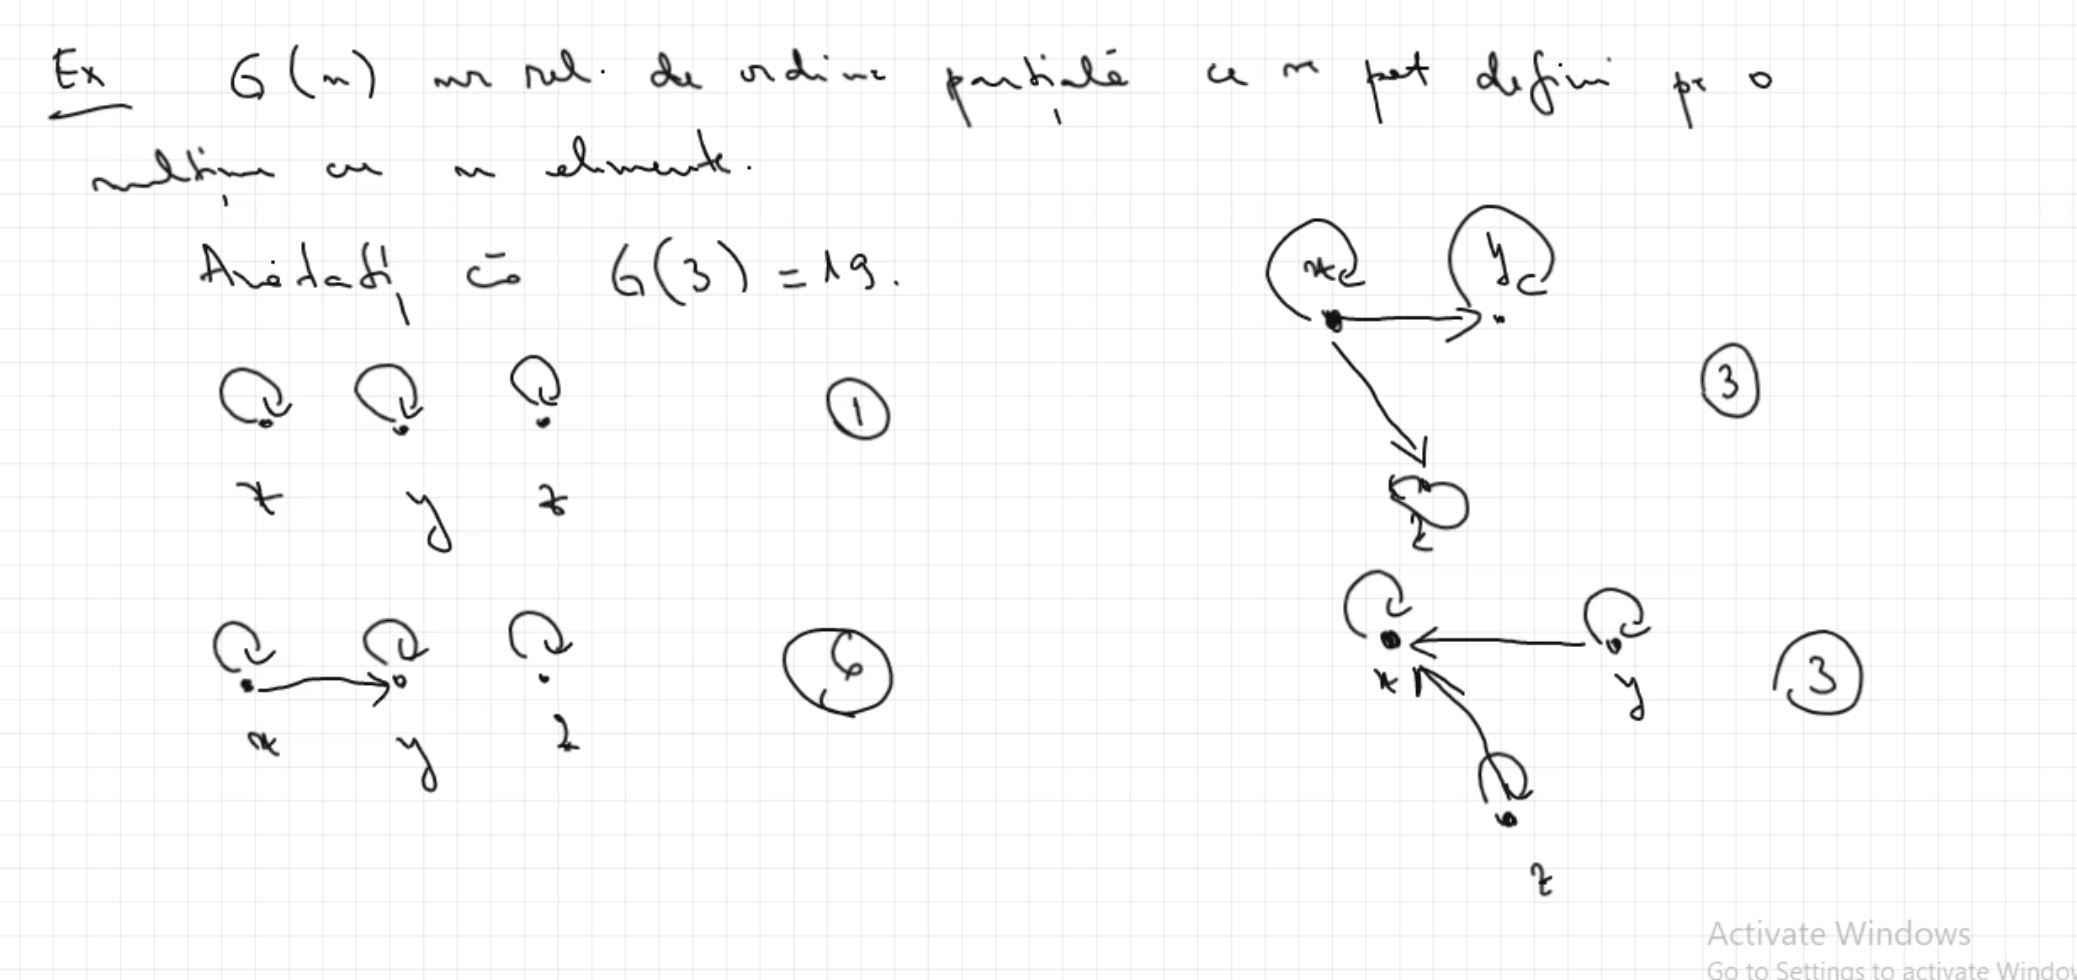 Ex G(n) nr rel. de ordine parțială ce se pot defini pe o
mulțime cu n elemente.
Arătați că G(3) = 19.
x y z
1
x y z
6
x y
z
3
x y
z
3
Activate Windows
Go to Settings to activate Window